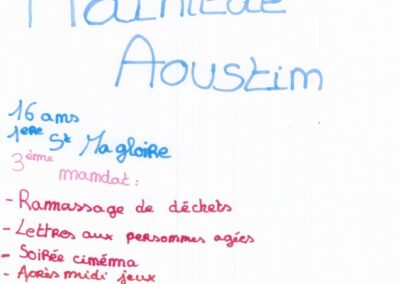 Mathilde
Aoustim
16 ams
1ère St Magloire
3ème
mamdat :
- Ramassage de déckets
- Lettres aux persommes agées
- Soirée cimémma
- Après midi jeux